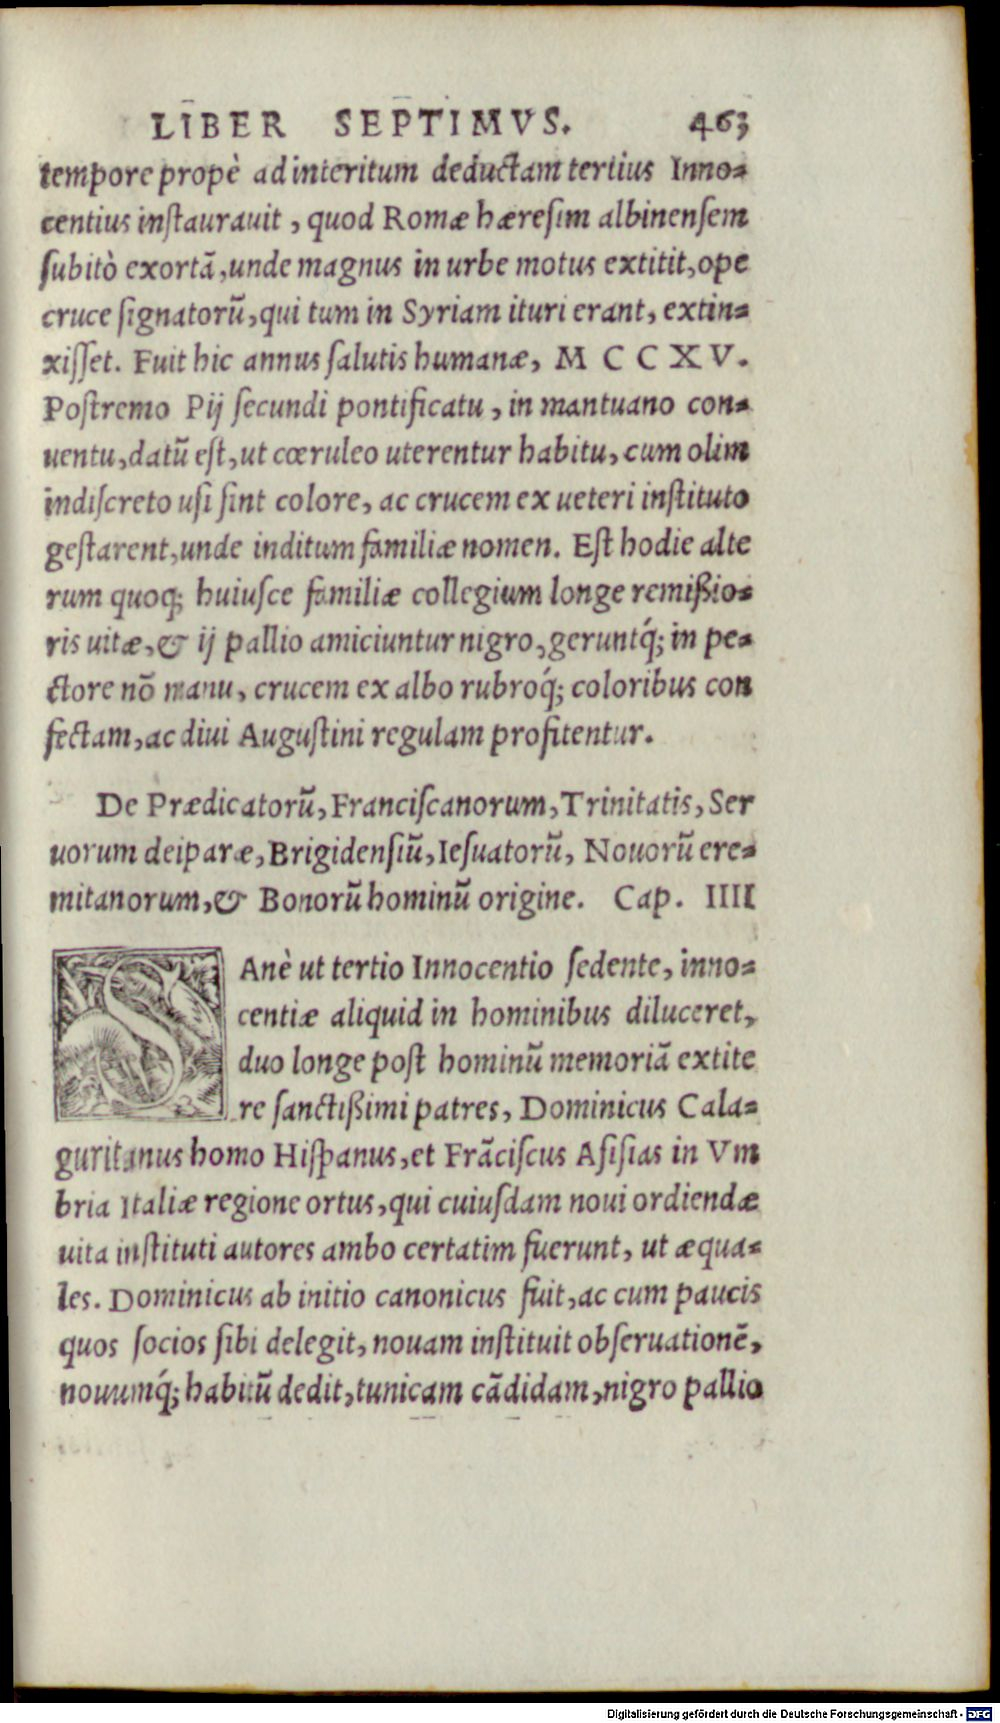 LIBER SEPTIMVS. 463
tempore propè ad interitum deductam tertius Inno-
centius instaurauit, quod Romæ hæresim albinensem
subitò exortā, unde magnus in urbe motus extitit, ope
cruce signatorū, qui tum in Syriam ituri erant, extin-
xisset. Fuit hic annus salutis humanæ, M C C X V.
Postremo Pij secundi pontificatu, in mantuano con-
uentu, datū est, ut cœruleo uterentur habitu, cum olim
indiscreto usi sint colore, ac crucem ex ueteri instituto
gestarent, unde inditum familiæ nomen. Est hodie alte
rum quoq; huiusce familiæ collegium longe remißio-
ris uitæ, & ij pallio amiciuntur nigro, geruntq́; in pe-
ctore nō manu, crucem ex albo rubroq́; coloribus con
fectam, ac diui Augustini regulam profitentur.
De Prædicatorū, Franciscanorum, Trinitatis, Ser
uorum deiparæ, Brigidensiū, Iesuatorū, Nouorū ere-
mitanorum, & Bonorū hominū origine. Cap. IIII
SAnè ut tertio Innocentio sedente, inno-
centiæ aliquid in hominibus diluceret,
duo longe post hominū memoriā extite
re sanctißimi patres, Dominicus Cala-
guritanus homo Hispanus, et Frāciscus Asisias in Vm
bria Italiæ regione ortus, qui cuiusdam noui ordiendæ
uita instituti autores ambo certatim fuerunt, ut æqua-
les. Dominicus ab initio canonicus fuit, ac cum paucis
quos socios sibi delegit, nouam instituit obseruationē,
nouumq́; habitū dedit, tunicam cādidam, nigro pallio
Digitalisierung gefördert durch die Deutsche Forschungsgemeinschaft - DFG